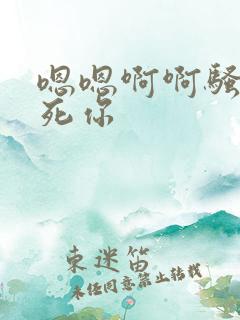 嗯嗯啊啊骚
死你
东迷笛
未经同意禁止转载